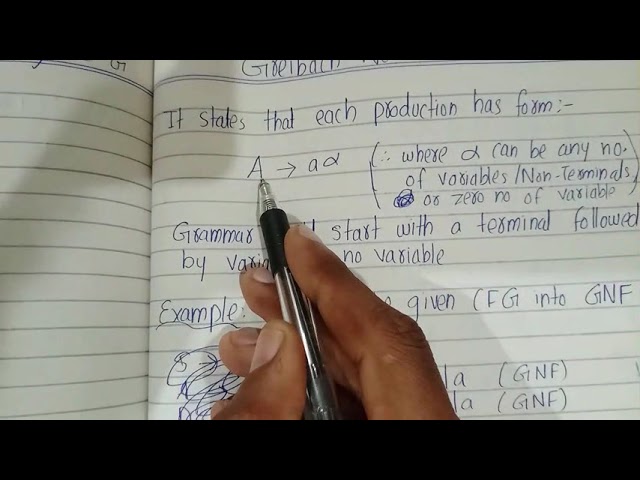 G
Greibach
It states that each production has form:-
A → aα (∴ where α can be any no.
of variables/Non-Terminals
or zero no of variable)
Grammar start with a terminal followed
by no variable
Example: given CFG into GNF
S →
la (GNF)
la (GNF)